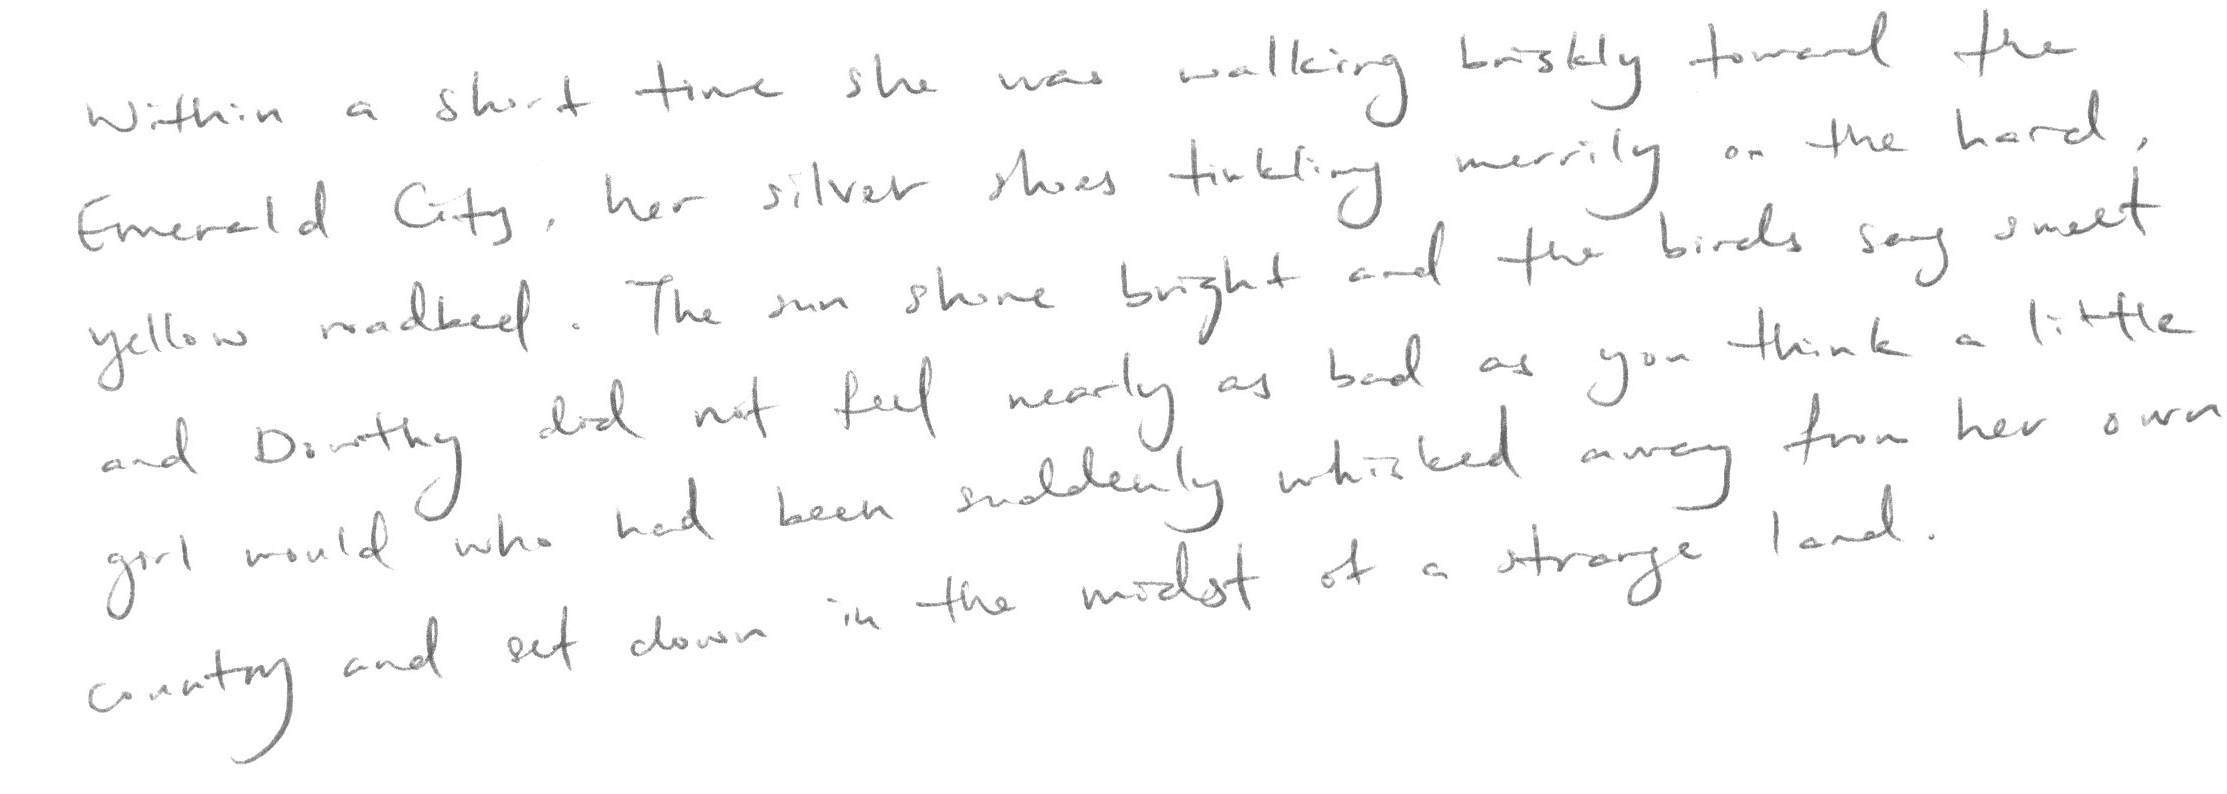 Within a short time she was walking briskly toward the
Emerald City, her silver shoes tinkling merrily on the hard,
yellow roadbed. The sun shone bright and the birds sang sweet
and Dorothy did not feel nearly as bad as you think a little
girl would who had been suddenly whisked away from her own
country and set down in the midst of a strange land.